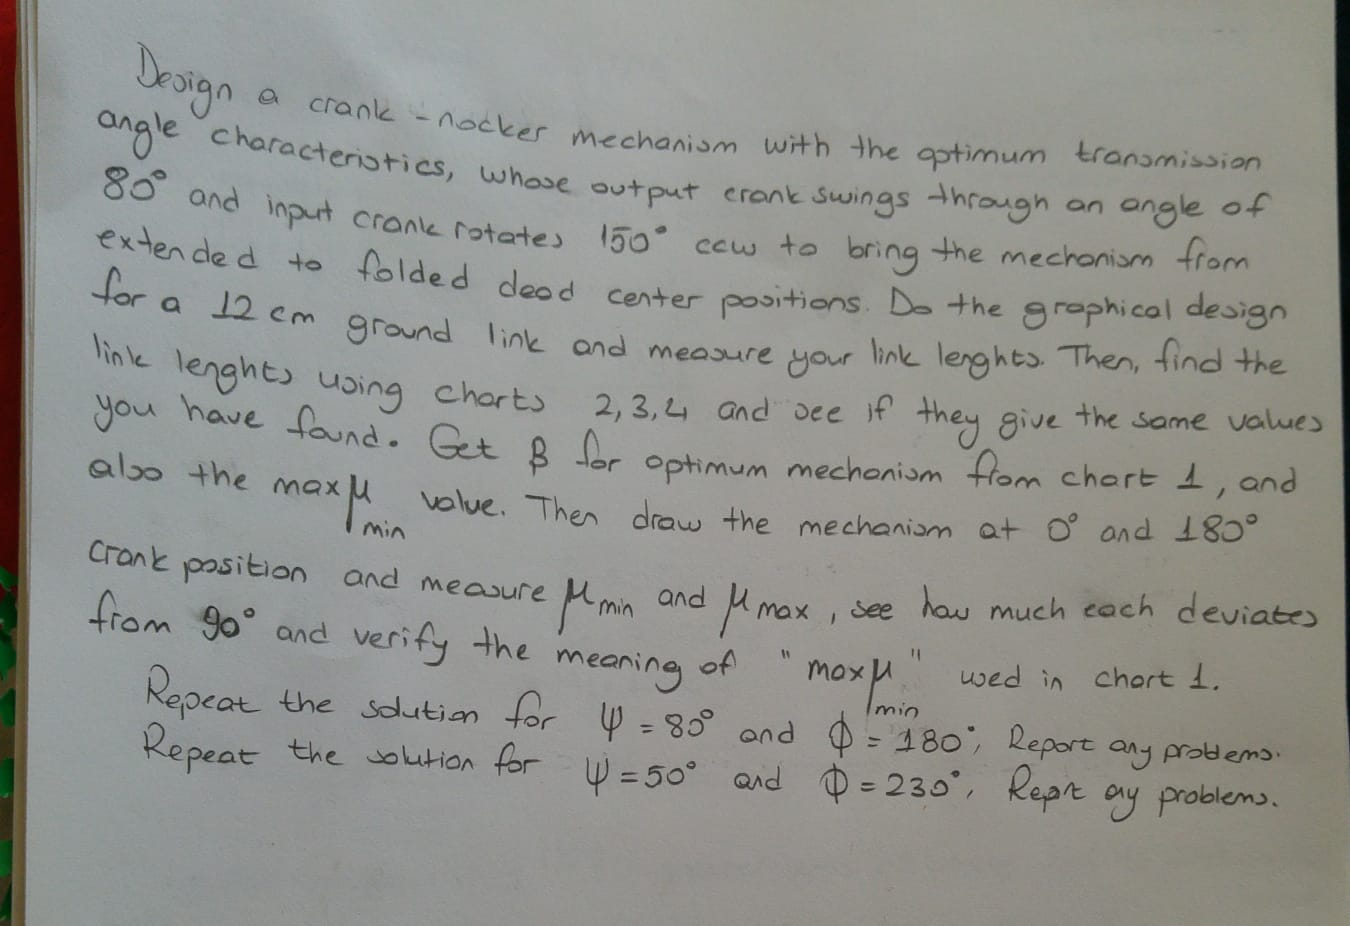 Design a crank-rocker mechanism with the optimum transmission
angle characteristics, whose output crank swings through an angle of
80° and input crank rotates 150° ccw to bring the mechanism from
extended to folded dead center positions. Do the graphical design
for a 12 cm ground link and measure your link lenghts. Then, find the
link lenghts using charts 2,3,4 and see if they give the same values
you have found. Get β for optimum mechanism from chart 1, and
also the max μmin value. Then draw the mechanism at 0° and 180°
crank position and measure μmin and μmax, see how much each deviates
from 90° and verify the meaning of "max μmin" used in chart 1.
Repeat the solution for ψ = 80° and ϕ = 180°, Report any problems.
Repeat the solution for ψ = 50° and ϕ = 230°, Report any problems.